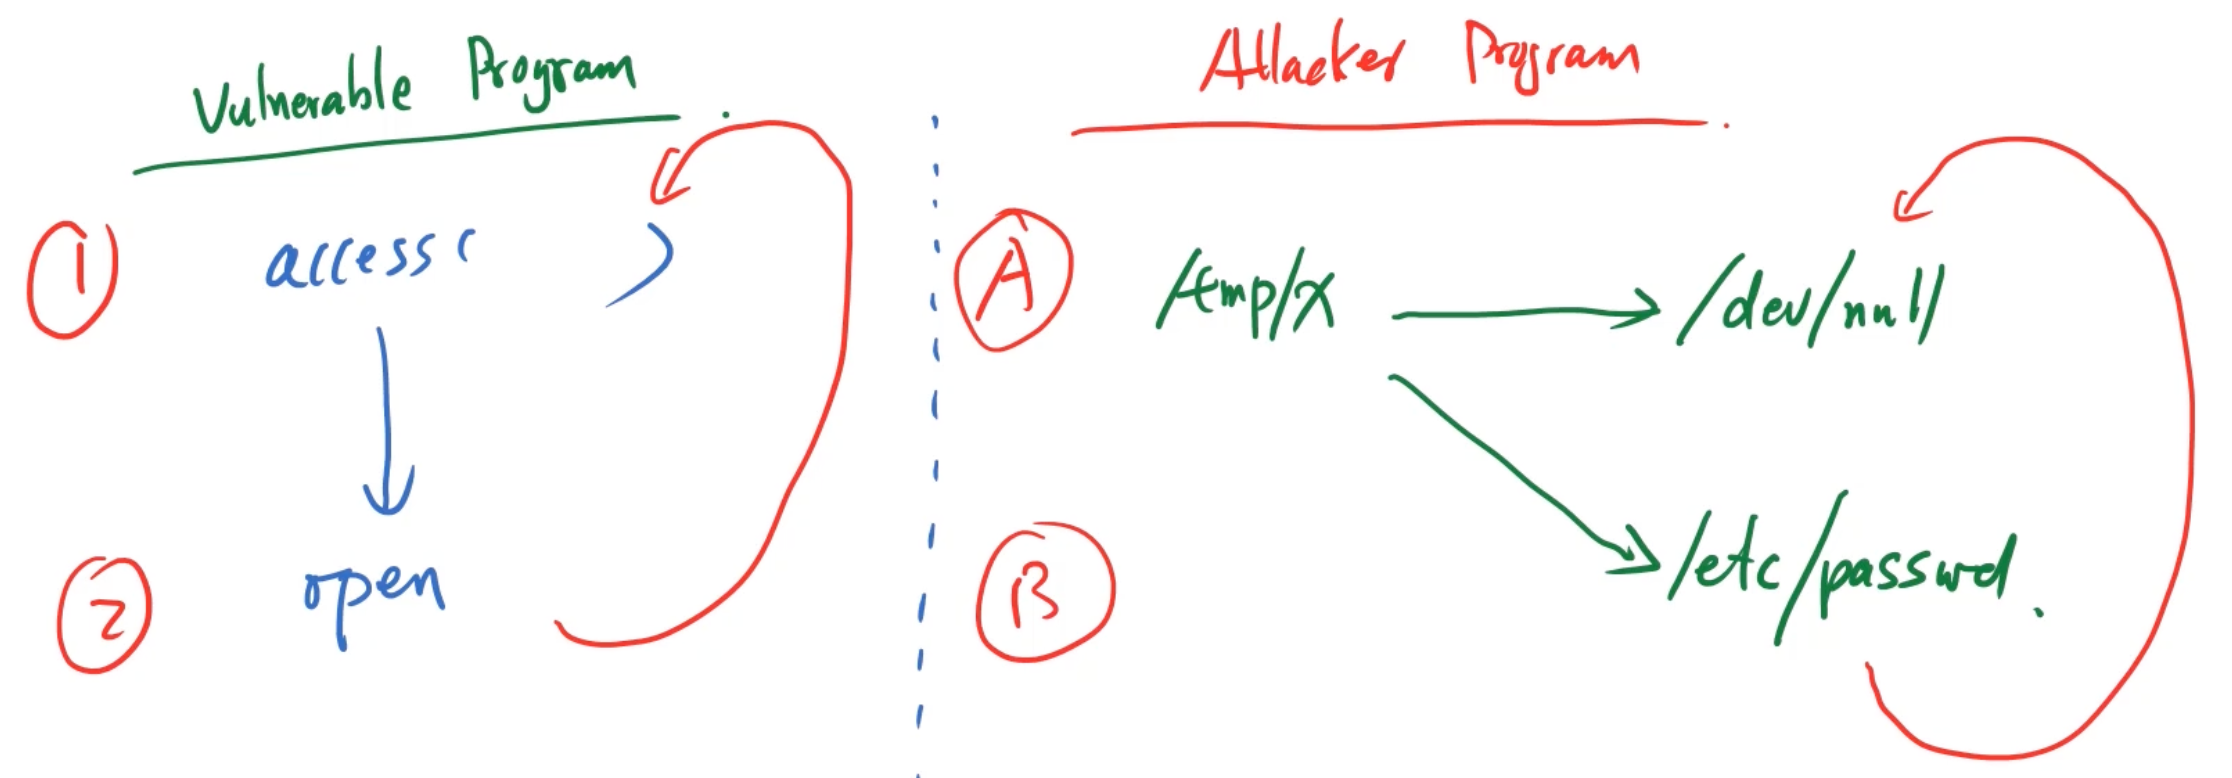 Vulnerable Program
1 access( )
2 open
Attacker Program
A /tmp/x /dev/null
B /etc/passwd.